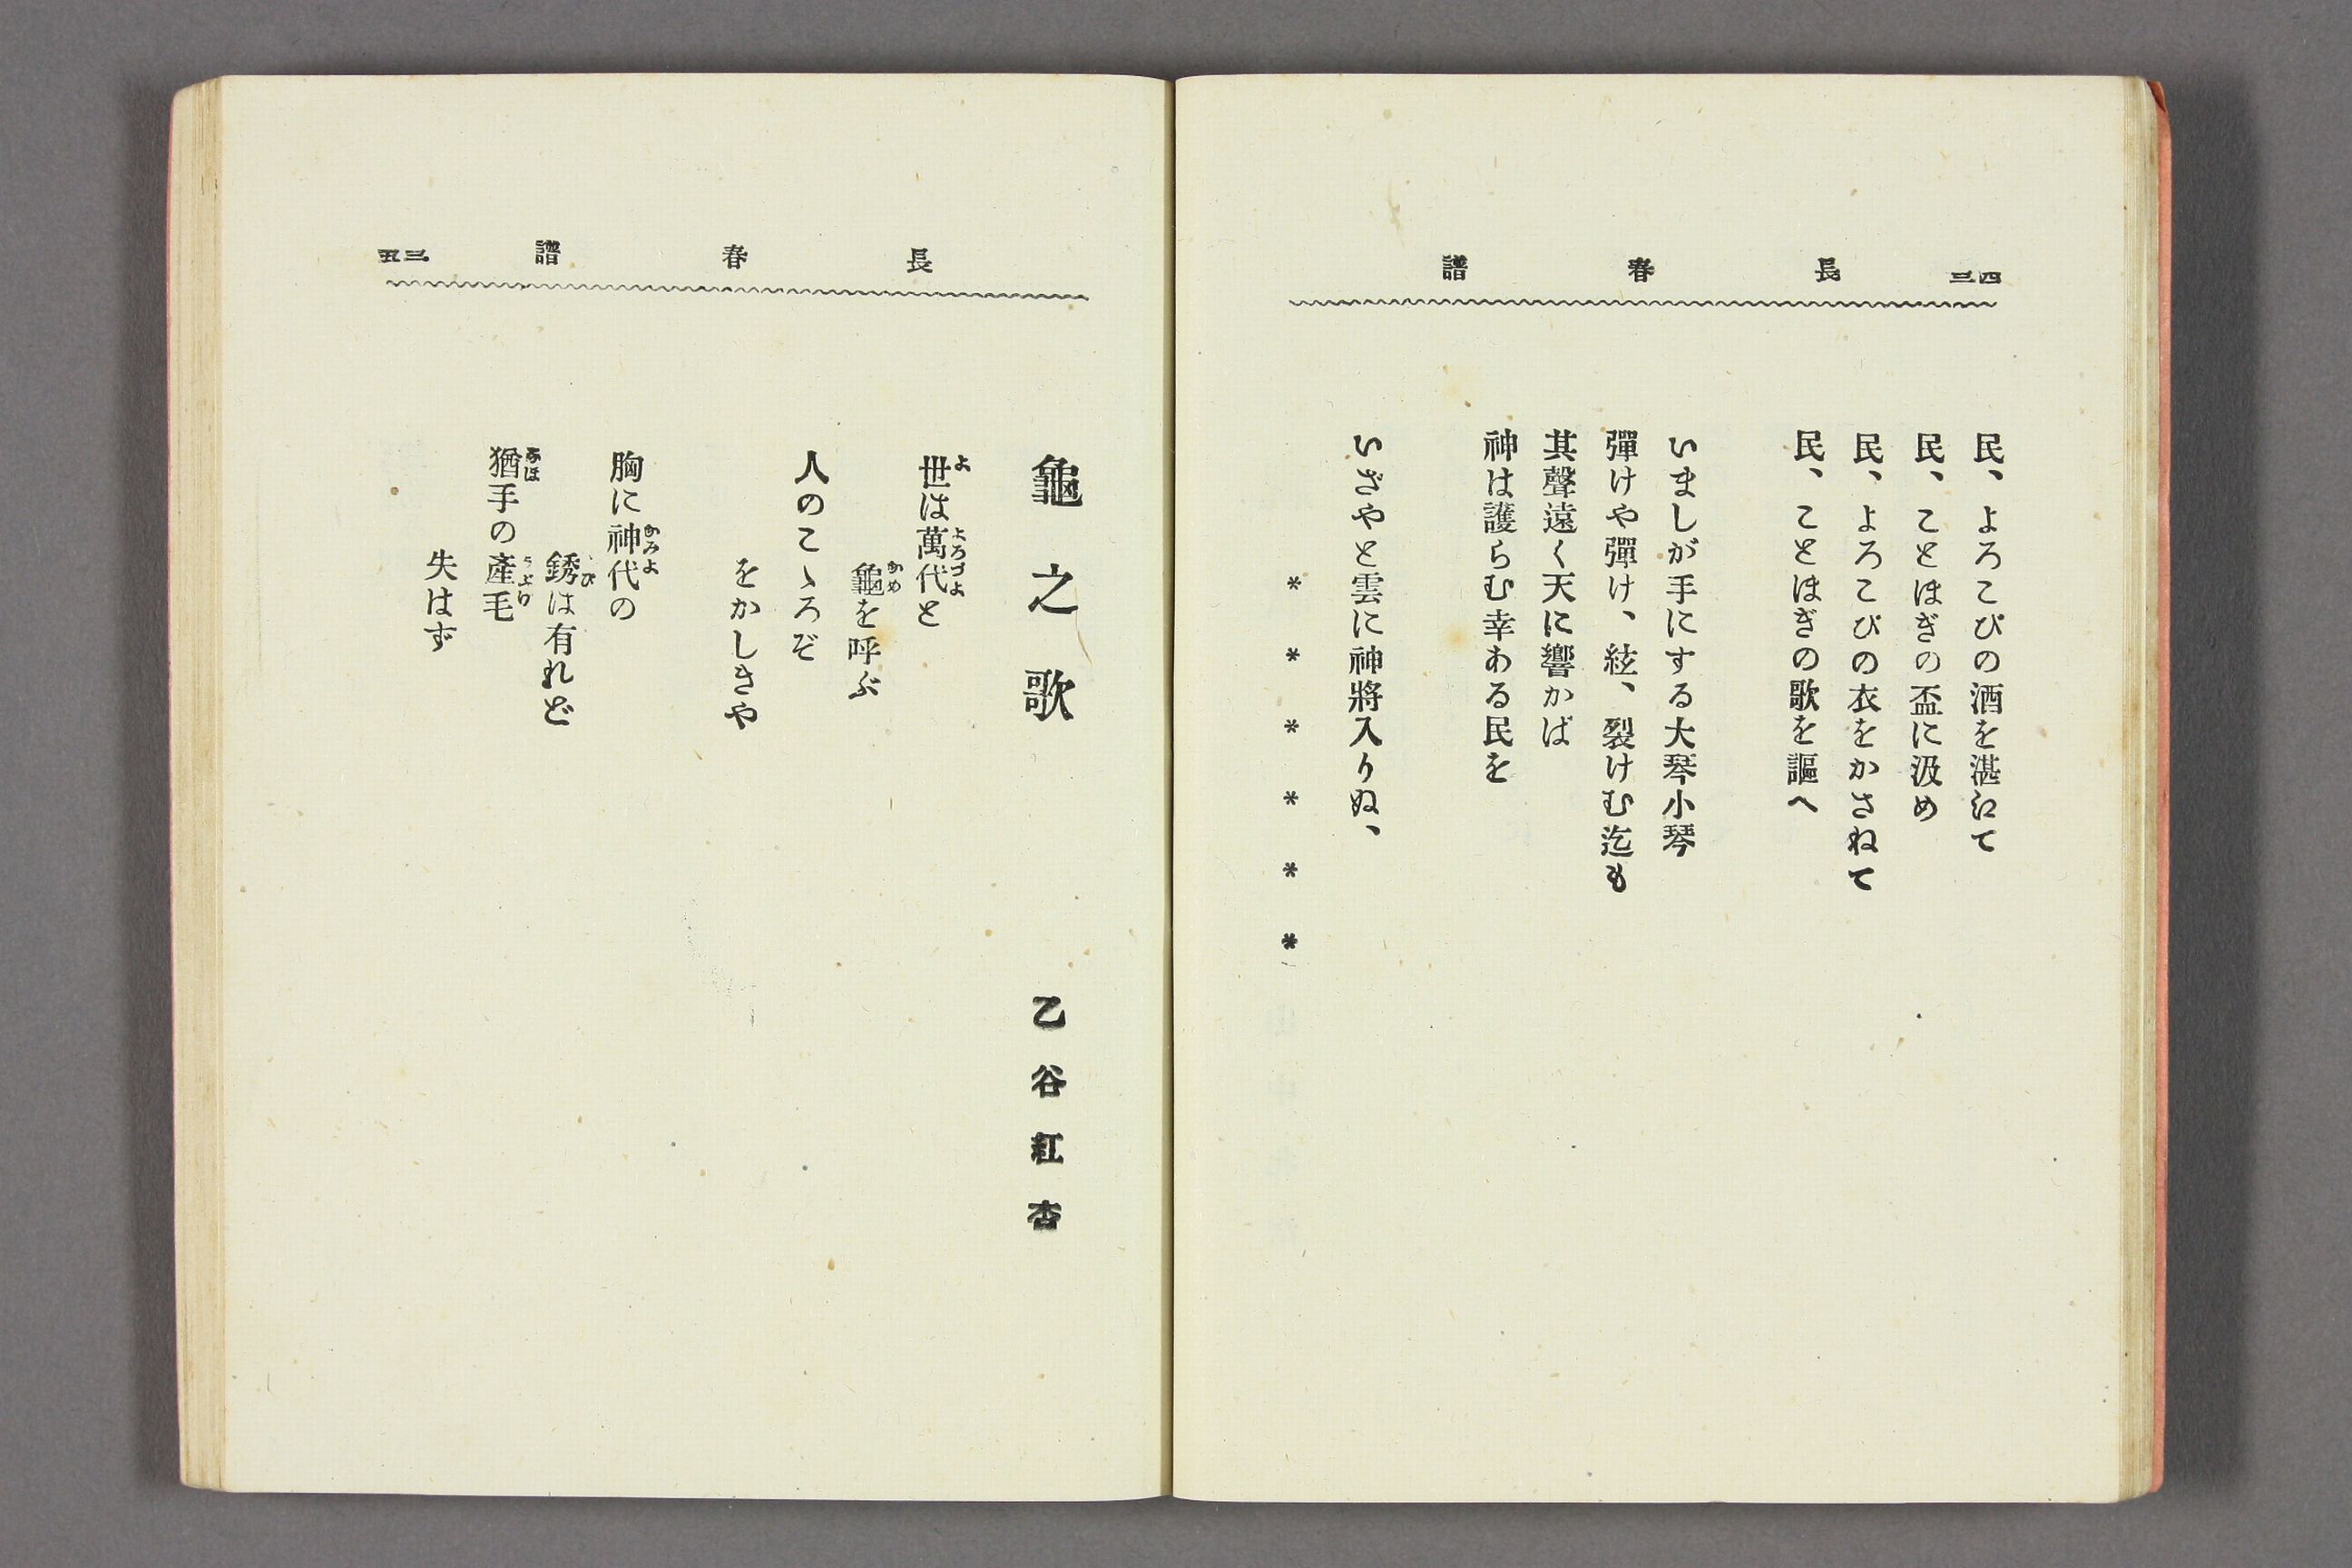 四三
長春譜
民、よろこびの酒を湛江て
民、ことほぎの盃に汲め
民、よろこびの衣をかさねて
民、ことほぎの歌を謳へ
いましが手にする大琴小琴
彈けや彈け、絃、裂けむ迄も
其聲遠く天に響かば
神は護らむ幸ある民を
いざやと雲に神將入りぬ、
* * * * * *
長春譜
三五
龜之歌
乙谷紅杏
世は萬代と
龜を呼ぶ
人のこゝろぞ
をかしきや
胸に神代の
銹は有れど
猶手の產毛
失はず